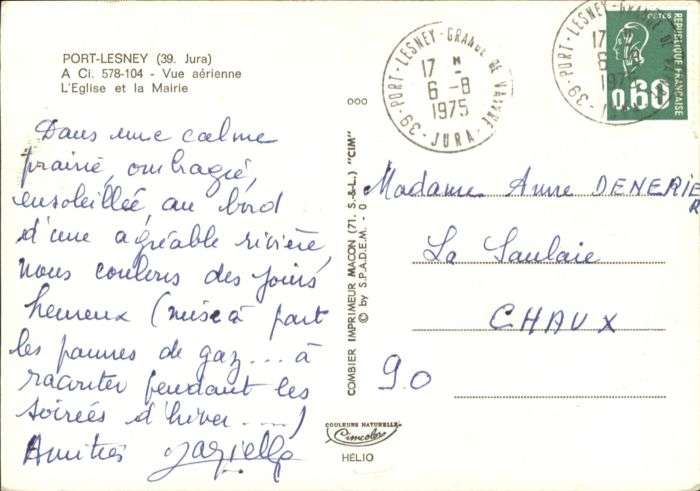 PORT-LESNEY (39. Jura)
A Ci. 578-104 - Vue aérienne
L'Eglise et la Mairie
Dans une calme
prairie, ombragié,
ensoleillée, au bord
d'une agréable rivière,
nous coulons des jours
heureux (mise à part
les pannes de gaz... à
raconter pendant les
soirées d'hiver....)
Amitiés
COMBIER IMPRIMEUR MACON (71. S.-&-L.) "CIM"
© by S.P.A.D.E.M. - 0
COULEURS NATURELLES
Cimcolor
HÉLIO
39-PORT-LESNEY-GRANGE DE VAIVRE
17 H
6-8
1975
-JURA-
39-PORT-LESNEY-GRANGE DE
17
6
1975
POSTES
REPUBLIQUE FRANÇAISE
0,60
Madame Anne DENERIER
La Saulaie
CHAUX
90